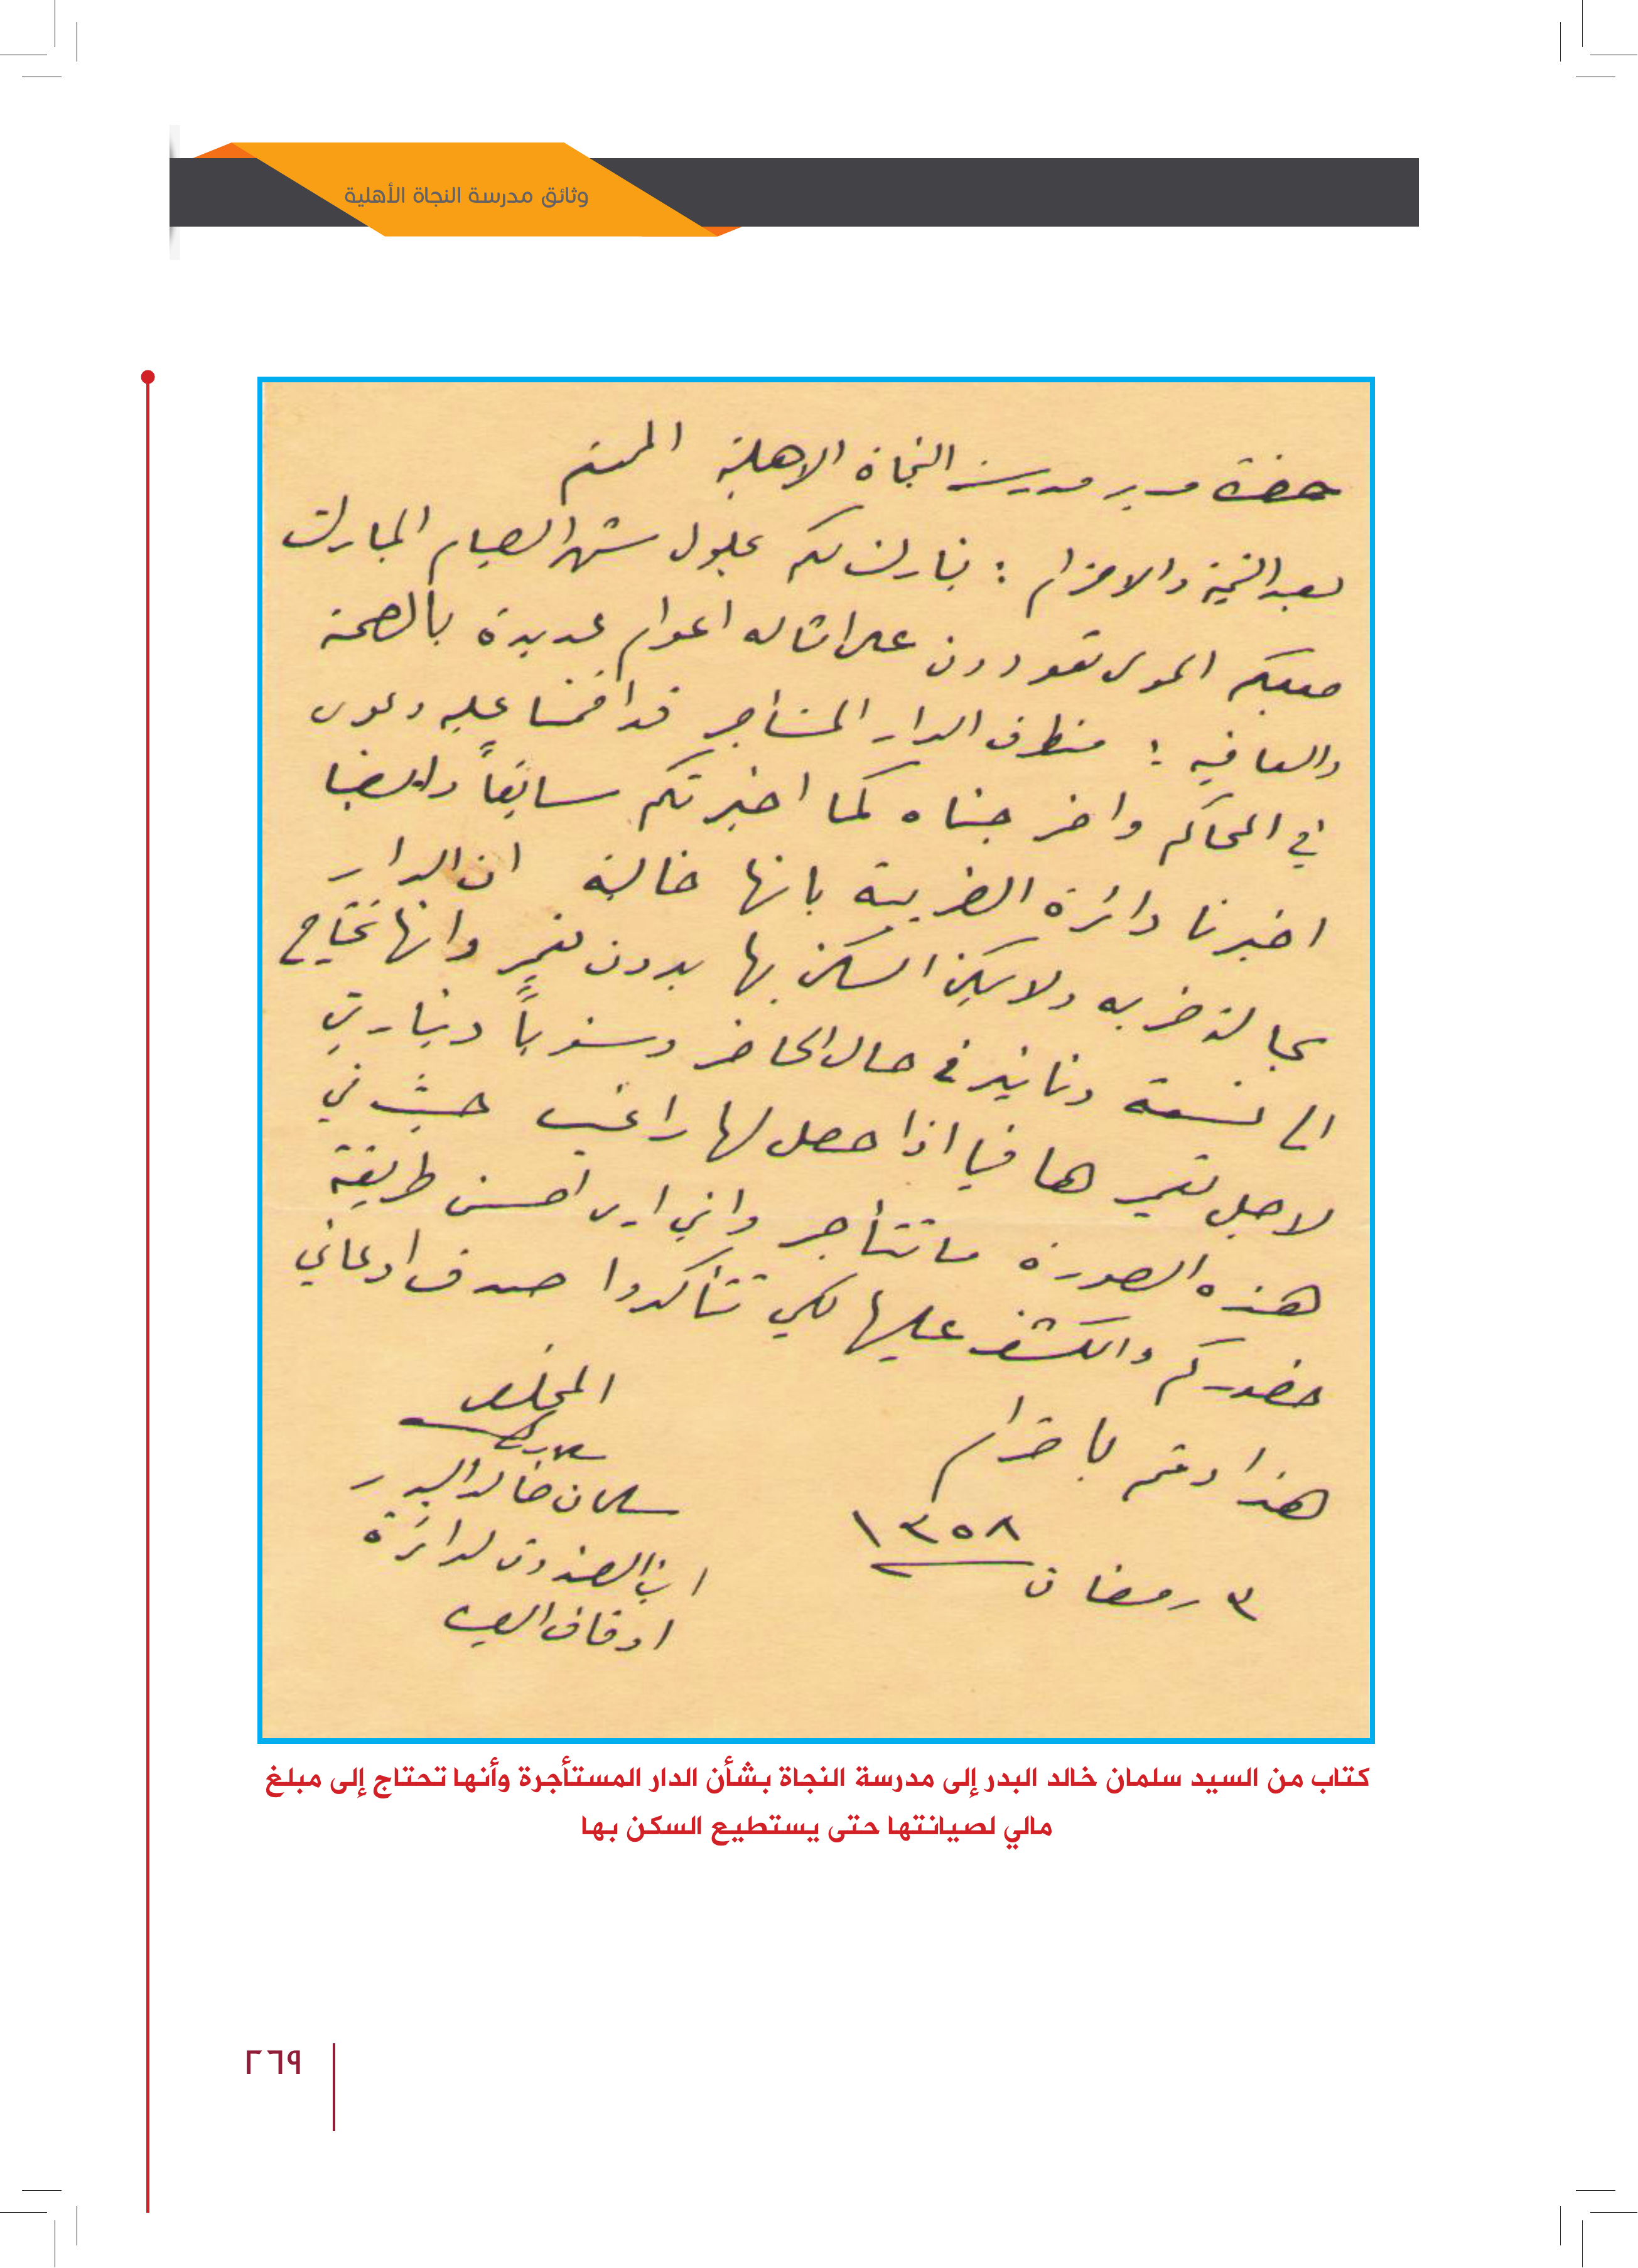 وثائق مدرسة النجاة الأهلية
حضرة مدير مدرسة النجاة الاهلية المحترم
بعد التحية والاحترام : نبارك لكم بحلول شهر الصيام المبارك
جعلكم المولى تعودون على امثاله اعوام عديدة بالصحة
والعافيه : من طرف الدار المستأجر قد اقمنا عليه دعوى
في المحاكم واخرجناه كما اخبرتكم سابقاً وايضا
اخبرنا دائرة الضريبة بانها خالية ان الدار
بحالة خربه ولا يمكن السكن بها بدون تعمير وانها تحتاج
الى تسعة دنانير في حال الحاضر وسنوياً دينارين
لاجل تعميرها فيما اذا حصل لها راغب حيث في
هذه الصورة ما تتأجر واني ارى احسن طريقة
حضوركم والكشف عليها لكي تتأكدوا صدق ادعائي
هذا ودمتم باحترام
٣ رمضان ١٣٥٨
المخلص
سلمان خالد البدر
امين الصندوق لدائرة
اوقاف
كتاب من السيد سلمان خالد البدر إلى مدرسة النجاة بشأن الدار المستأجرة وأنها تحتاج إلى مبلغ
مالي لصيانتها حتى يستطيع السكن بها
٢٦٩